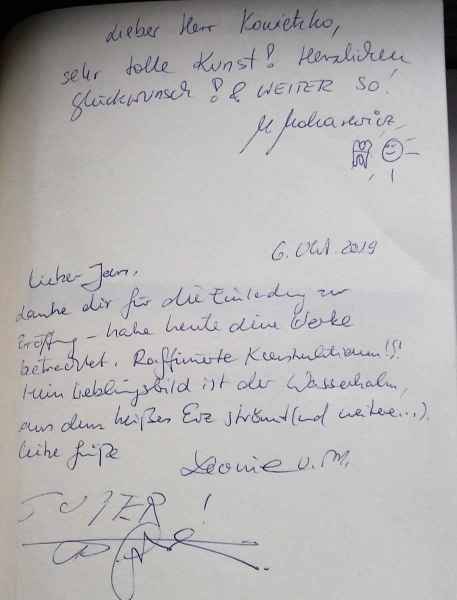 Lieber Herr Konietzko,
sehr tolle Kunst! Herzlichen
Glückwunsch! & WEITER SO!
6. Okt. 2019
Lieber Jan,
danke dir für die Einladung zur
Eröffnung – habe heute deine Werke
betrachtet. Raffinierte Konstruktionen!!!
Mein Lieblingsbild ist der Wasserhahn,
aus dem heißes Erz strömt (und weitere...).
liebe Grüße
Leonie v. M.
SUPER!